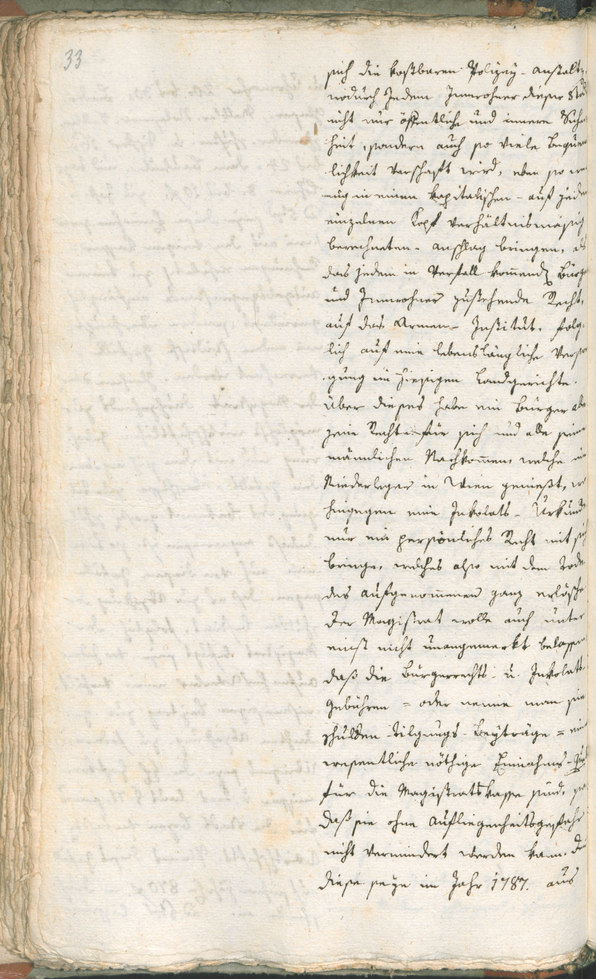 33
sich die kostbaren Polizey-Anstalt,
wodurch Jedem Innwohner dieser Stad
nicht nur öffentliche und innere Siche
heit, sondern auch so viele Bequem
lichkeit verschaft wird, eben so we
nig in einen kapitalischen - auf jeden
einzelnen Kopf verhältnismäsig
berechneten - Anschlag bringen, als
das jedem in Verfall kommend Bürge
und Innwohner zustehende Recht,
auf das Armen-Institut, folg
lich auf eine lebenslängliche Verso
gung im hiesigen Landgerichte.
Über dieses habe ein Bürger
seine Rechte für sich und alle seine
männlichen Nachkommen, welche ein
Niederleger in Wien genießt, wo
hingegen eine Inkolats-Urkunde
nur ein persönliches Recht mit sich
bringe, welches also mit dem Tode
des aufgenommenen ganz erlösche
Der Magistrat wolle auch unter
einst nicht unangemerkt belassen
daß die Bürgerrechts- u. Inkolats
Gebühren = oder nenne man sie
Schulden-Tilgungs-Beyträge = eine
wesentliche nöthige Einnahms-
für die Magistratskasse sind, 
daß sie ohne Aufliegenheitsgefahr
nicht vermindert werden kann. 
diese seye im Jahr 1787. aus